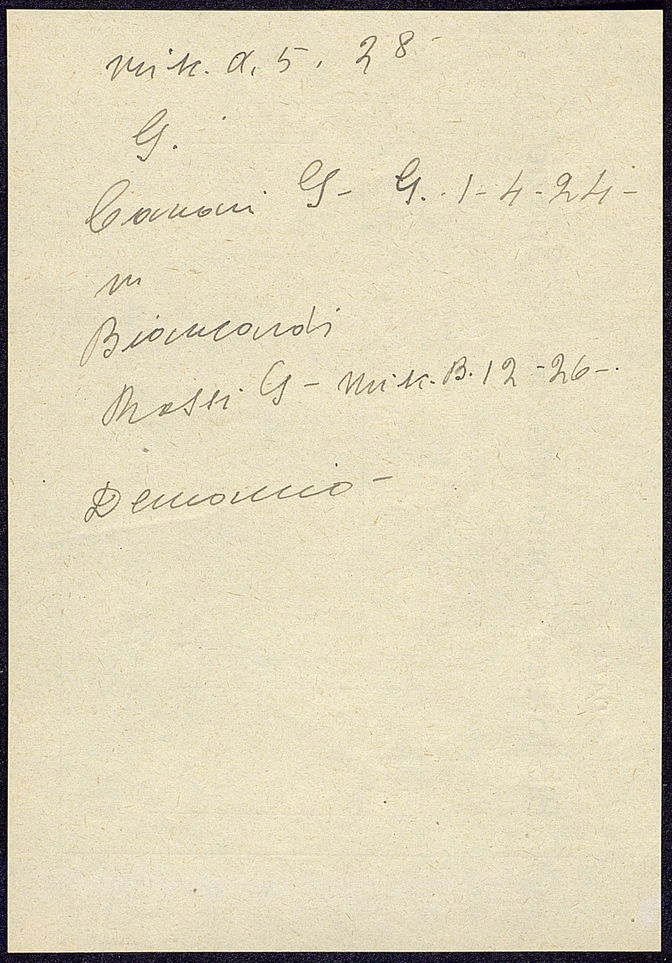 mik. a. 5. 28-
G.
Canani G- G. 1-4-24-
m
Biancardi
Rossi G- mik. B. 12-26-.
Demanio-